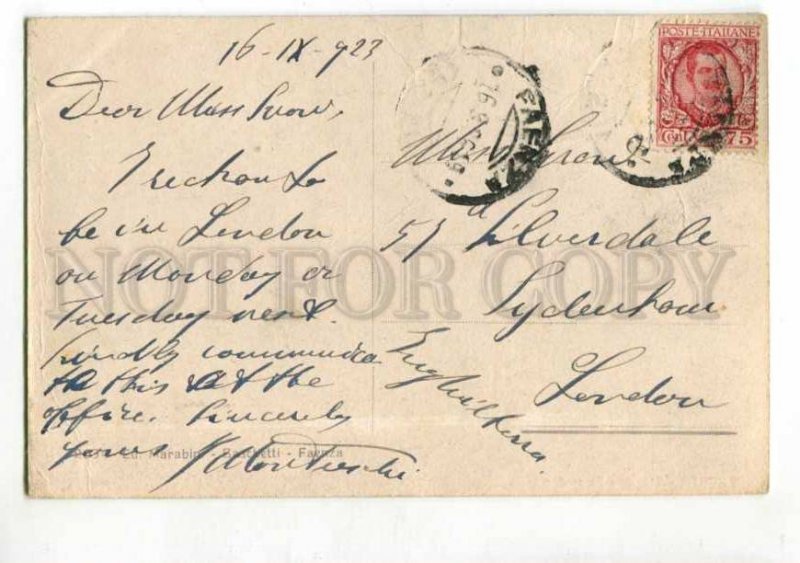 16-IX-923
Dear Miss Snow,
I reckon to
be in London
on Monday or
Tuesday next.
Kindly communica
te this at the
office. Sincerely
yours
Miss Snow
57 Silverdale
Sydenham
London
Inghilterra
POSTE ITALIANE
Cent 75
FAENZA
Ed. Marabini - Baschetti - Faenza
NOT FOR COPY